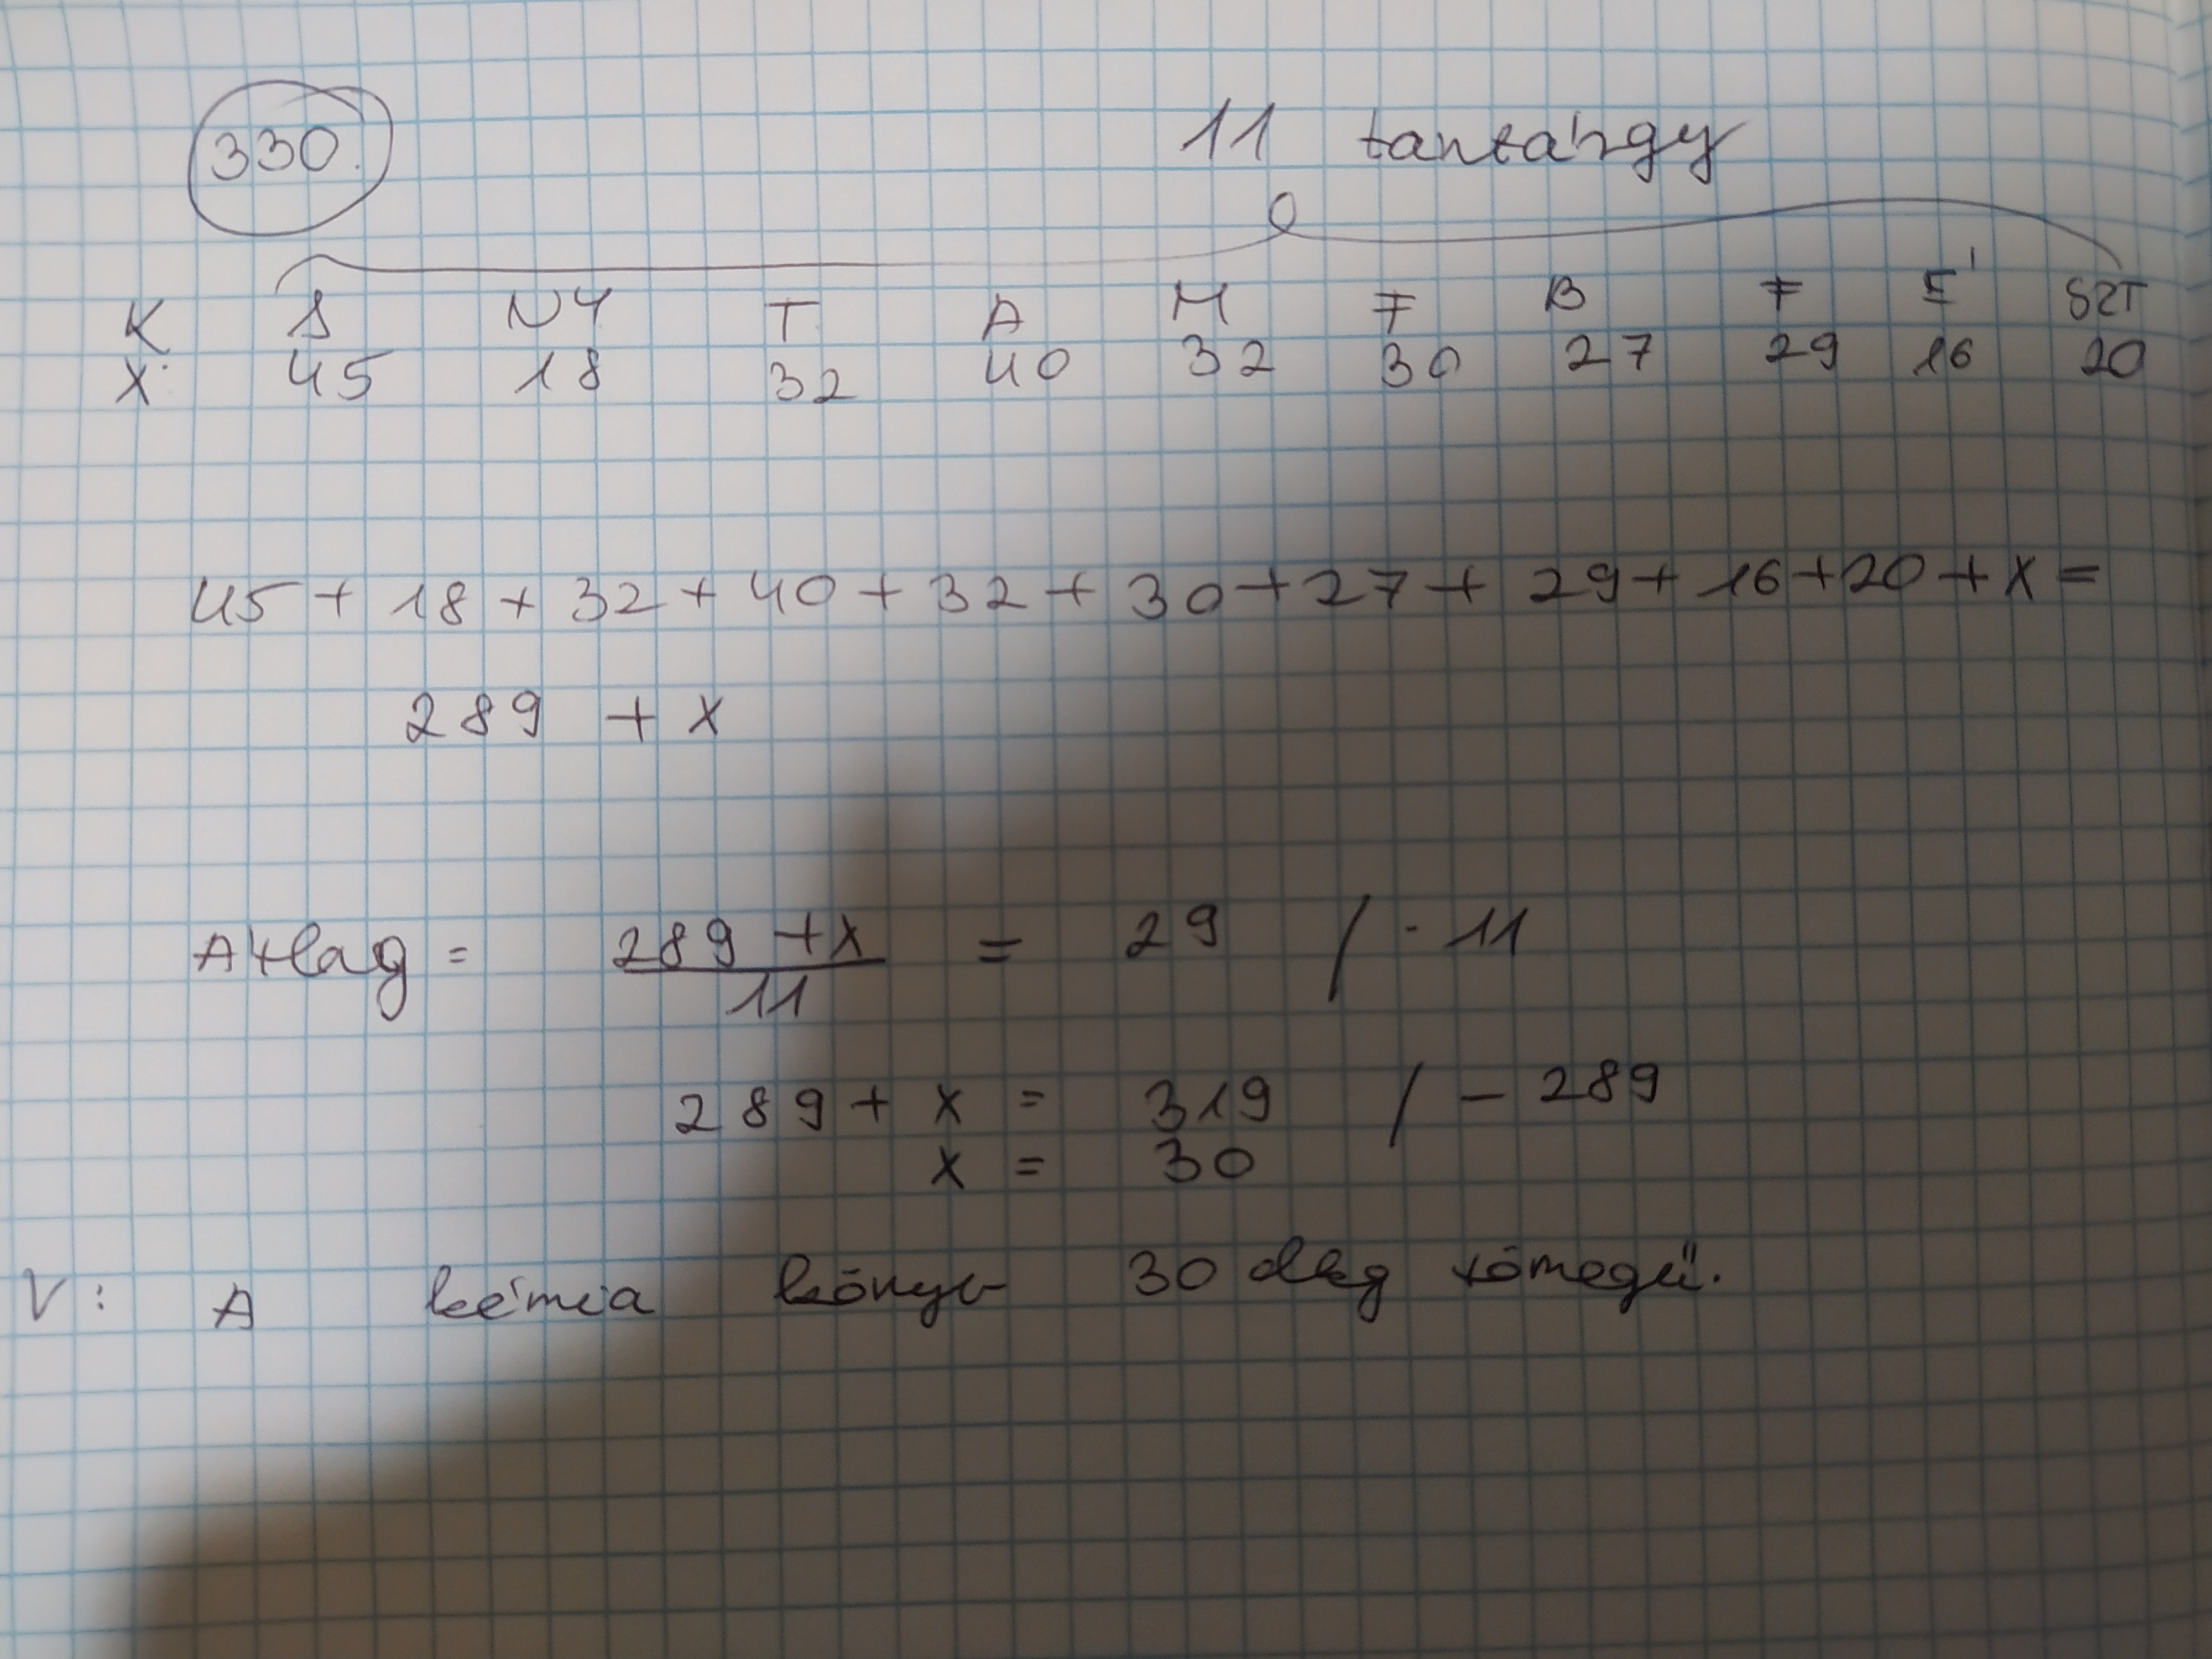 330.
11 tantárgy
K S NY T A M F B F É SZT
X 45 18 32 40 32 30 27 29 16 20
45 + 18 + 32 + 40 + 32 + 30 + 27 + 29 + 16 + 20 + x =
289 + x
Átlag = 289 + x / 11 = 29 / · 11
289 + x = 319 / - 289
x = 30
V: A kémia könyv 30 dkg tömegű.